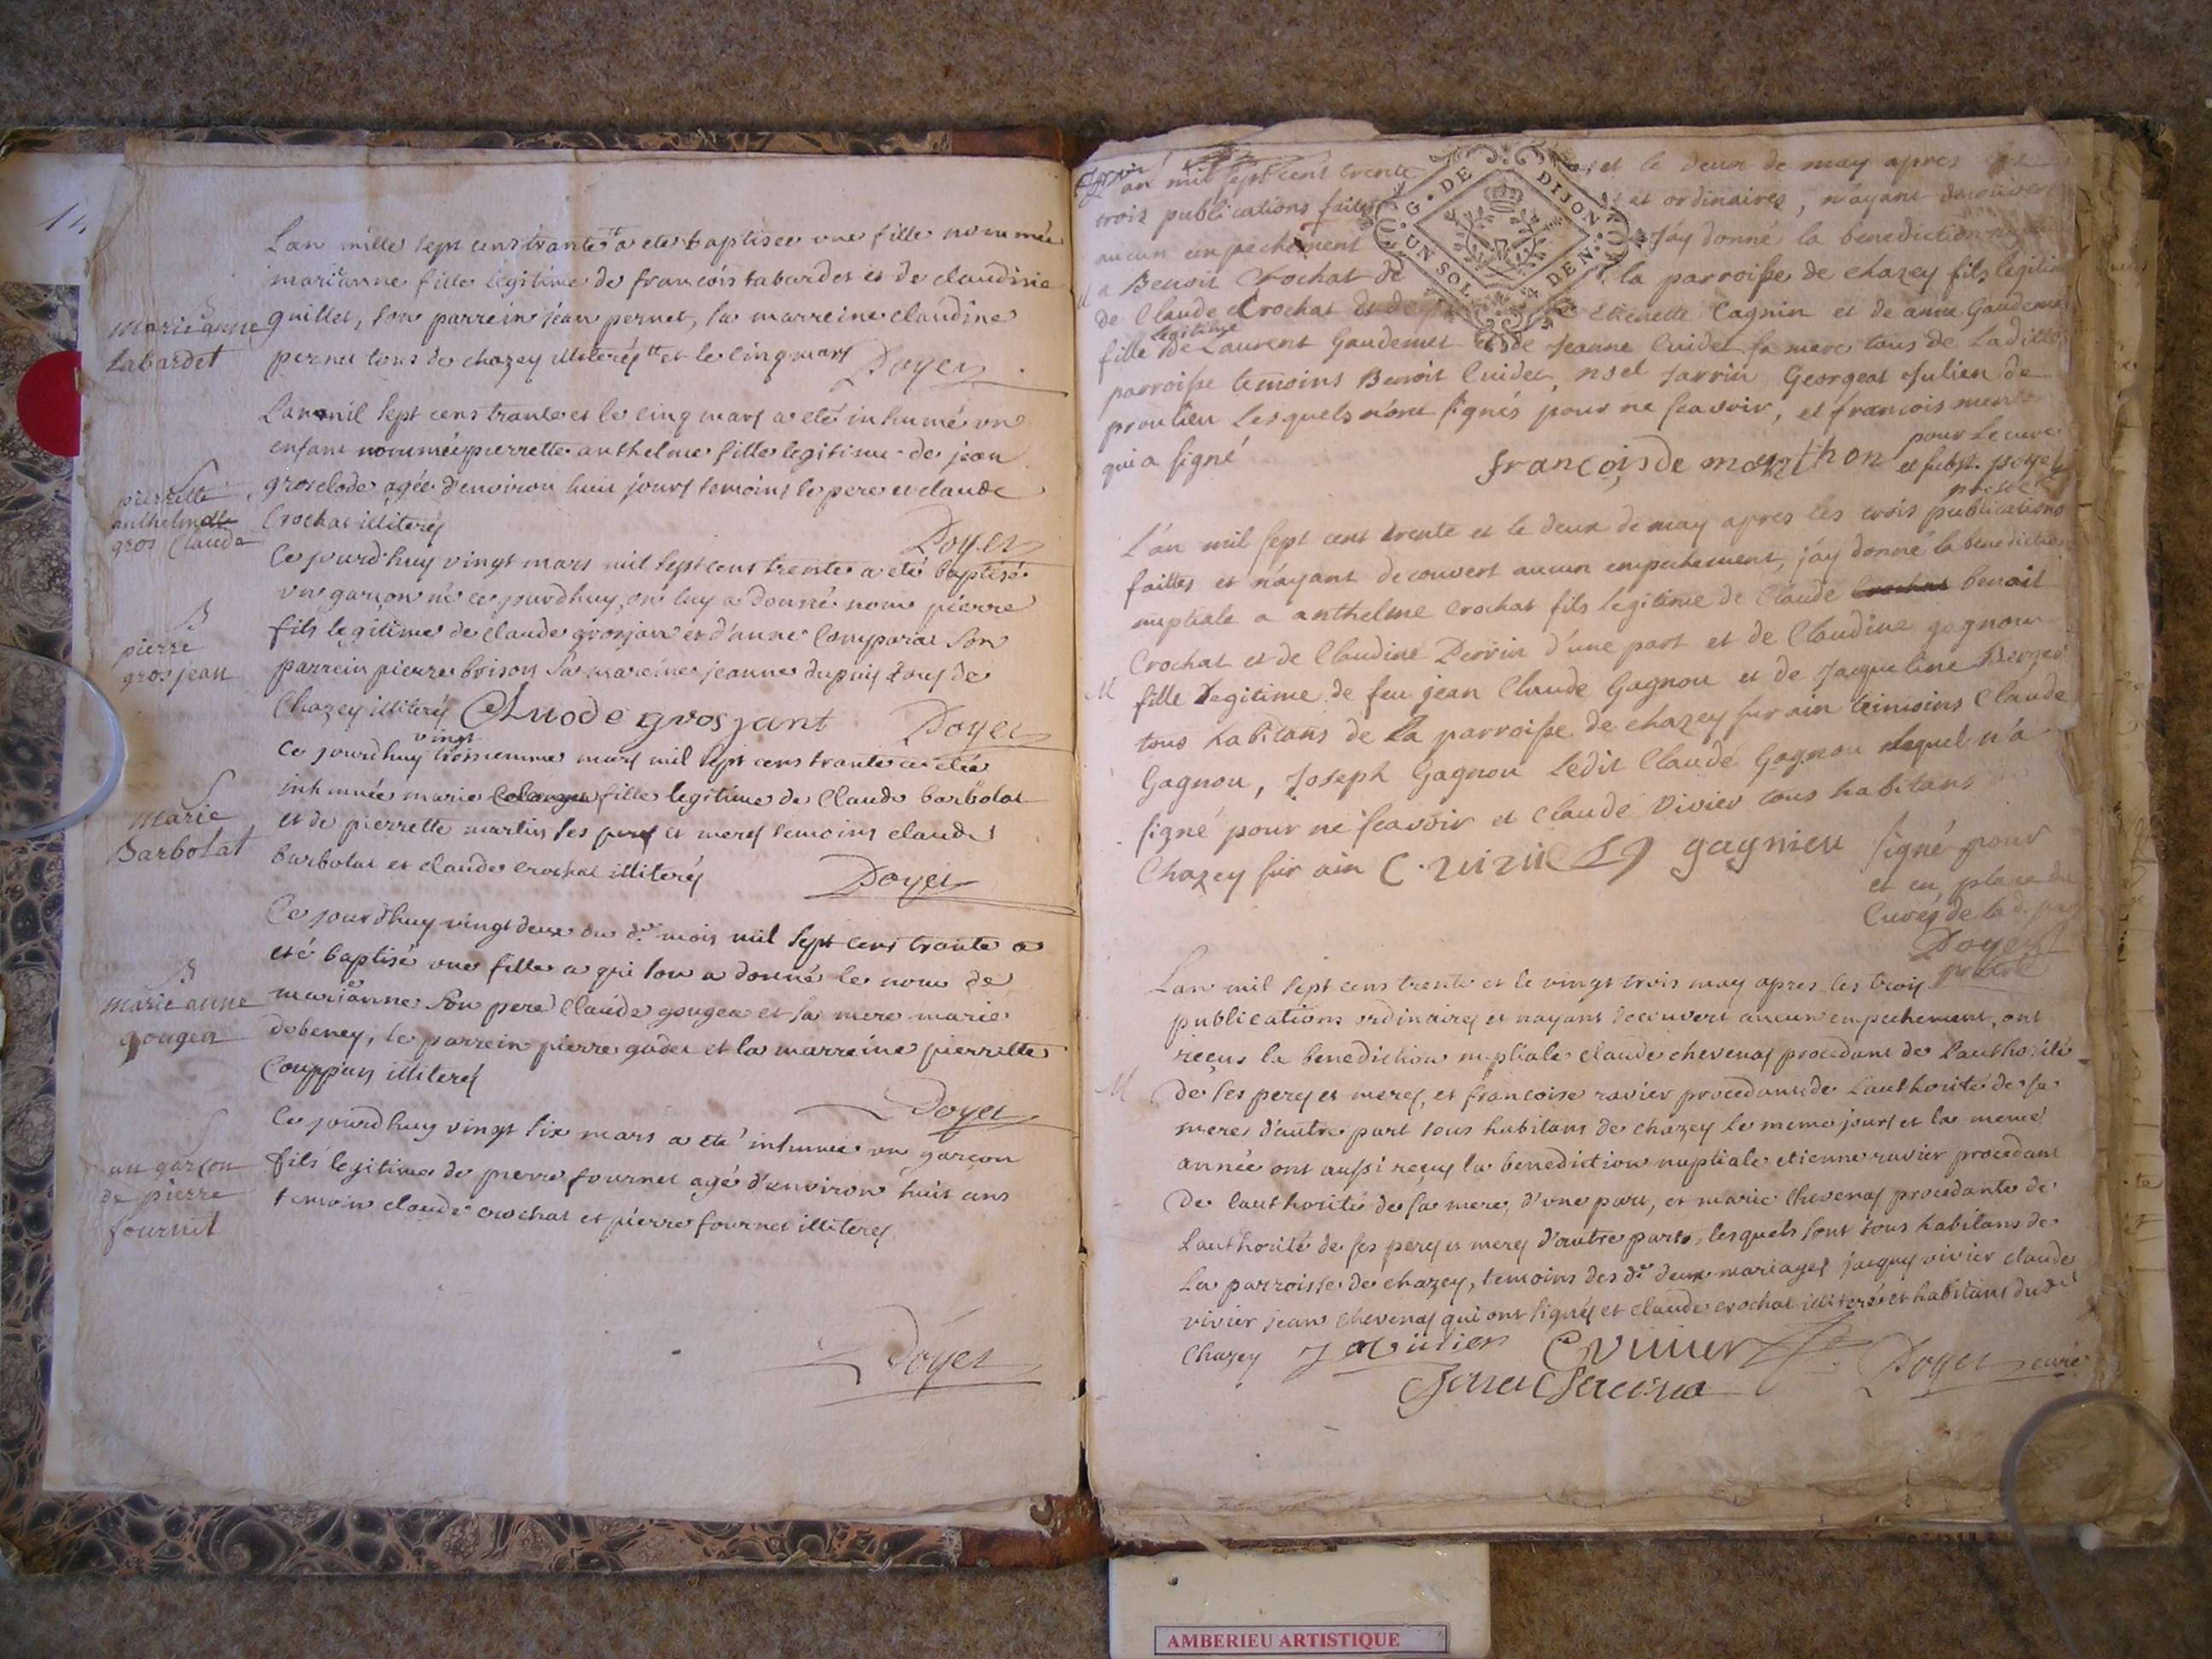 14
Lan mille sept cens trante a eté baptisée une fille nommée
marianne fille legitime de francois tabardet et de claudine
quillet, son parrein jean pernet, sa marreine claudine
pernet tous de chazey illiterés et le cinq mars Doyet
B
marie anne
tabardet
Lan mil sept cens trante et le cinq mars a eté inhumé un
enfant nommée pierrette anthelme fille legitime de jean
grosclode agée d'environ huit jours temoins le pere et claude
Crochat illiterés
Doyet
S
pierrette
anthelmette
gros Claude
Ce jourdhuy vingt mars mil sept cens trente a eté baptisé
un garçon né ce jourdhuy, on luy a donné nom pierre
fils legitime de claude grosjan et d'anne Comparat son
parrein pierre boison sa mareine jeanne dupuis tous de
Chazey illiterés Cluode grosjant Doyet
B
pierre
grosjean
Ce jourdhuy vingt troisiemme mars mil sept cens trante a etée
inhumée marie fille legitime de Claude barbolat
et de pierrette martin ses peres et meres temoins claude
barbolat et claude crochat illiterés
Doyet
S
marie
Barbolat
Ce jourdhuy vingt deux du d.t mois mil sept cens trante a
eté baptisé une fille a qui lon a donné le nom de
marianne son pere Claude gougea et sa mere marie
debeney, le parrein pierre godet et la marreine pierrette
Couppan illiterés
Doyet
B
marie anne
gougea
Ce jourdhuy vingt six mars a eté inhumée un garçon
fils legitime de pierre fournet agé d'environ huit ans
temoin claude crochat et pierre fournet illiterés
Doyet
S
un garçon
de pierre
fournet
G. DE DIJON
UN SOL DEN.
an mil sept cent trente et le deux de may apres les
trois publications faites et ordinaires, n'ayant decouvert
aucun empechement J'ay donné la benediction
M
a Benoit Crochat de la parroisse de chazey fils legitime
de Claude Crochat et de Etienette Cagnin et de anne Gaudemet
fille legitime de Laurent Gaudemet et de Jeanne Cuidet sa mere tous de Laditte
parroisse temoins Benoit Cuidet, nsel Jarrin, Georgeat Julien de
proulieu Lesquels n'ont signés pour ne scavoir, et francois
qui a signé françois de monthon pour le curé
et subst. Doyet
L'an mil sept cent trente et le deux de may apres les trois publications
faittes et n'ayant decouvert aucun empechement, j'ay donné la benediction
nuptiale a anthelme Crochat fils legitime de Claude Crochat benoit
Crochat et de Claudine Perrin d'une part et de Claudine gagnou
M
fille legitime de feu jean Claude Gagnou et de Jaqueline Berger
tous habitans de La parroisse de chazey sur ain temoins Claude
Gagnou, Joseph Gagnou Ledit Claude Gagnou Lequel n'a
signé pour ne scavoir et Claude Vivier tous habitans
Chazey sur ain C. vivié gagnieu signé pour
et en place du
Curés de lad.
Doyet
pretre
Lan mil sept cens trente et le vingt trois may apres les trois
publications ordinaires et nayant decouvert aucun empechement, ont
reçus la benediction nuptiale claude chevenas procedant de Lauthorité
M
de ses peres et meres, et francoise ravier procedante de Lauthorité de sa
mere d'autre part tous habitans de chazey le meme jours et la meme
année ont aussi reçus la benediction nuptiale etienne ravier procedant
De lauthorité de sa mere, d'une part, et marie Chevenas procedante de
Lauthorité de ses peres et meres d'autre part, lesquels sont tous habitans de
La parroisse de chazey, temoins des d.ts deux mariages jaques vivier claude
vivier jean chevenas qui ont signés et claude crochat illiteré et habitans dud.t
Chazey C vivier Doyet curé